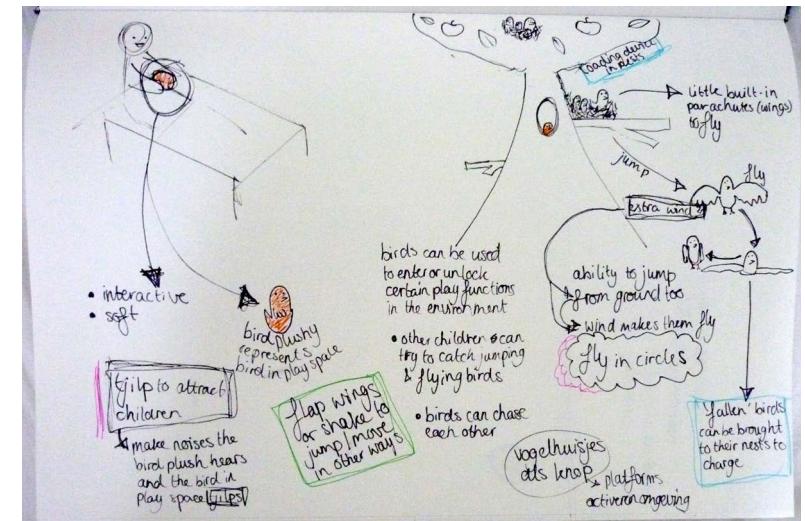 • interactive
• soft
bird plushy
represents
bird in play space
tjilp to attract
children
make noises the
bird plush hears
and the bird in
play space tjilps
flap wings
or shake to
jump/move
in other ways
birds can be used
to enter or unlock
certain play functions
in the environment
• other children can
try to catch jumping
& flying birds
• birds can chase
each other
vogelhuisjes
als knop
platforms
activeren omgeving
loading device
in nests
little built-in
parachutes (wings)
to fly
jump
fly
extra wind
ability to jump
from ground too
wind makes them fly
fly in circles
'fallen' birds
can be brought
to their nests to
charge